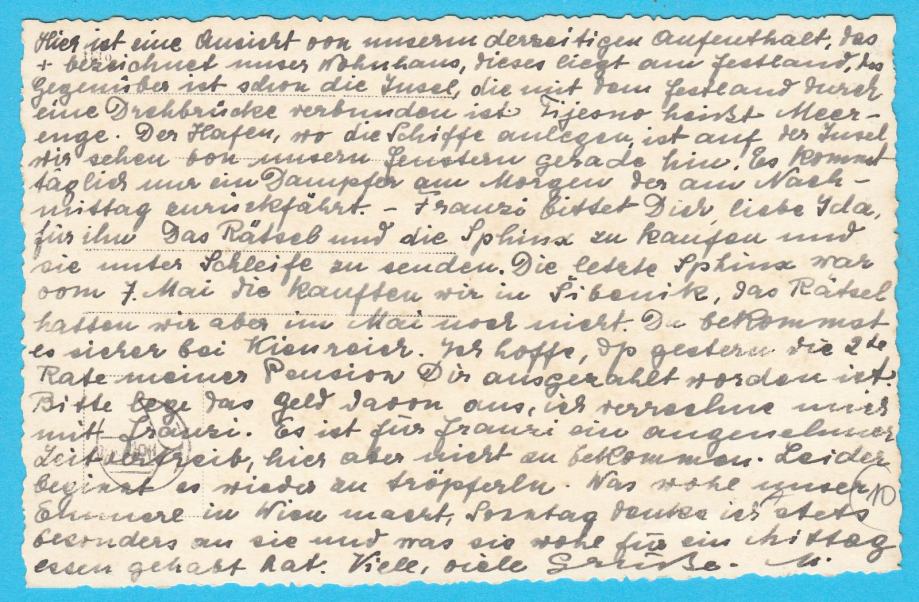 Hier ist eine Ansicht von unserm derzeitigen Aufenthalt, das
+ bezeichnet unser Wohnhaus, dieses liegt am Festland, das
Gegenüber ist schon die Insel, die mit dem Festland durch
eine Drehbrücke verbunden ist. Tijesno heisst Meer-
enge. Der Hafen, wo die Schiffe anlegen, ist auf der Insel
wir sehen von unsern Fenstern gerade hin. Es kommt
täglich nur ein Dampfer am Morgen der am Nach-
mittag zurückfährt. - Franzi bittet Dich, liebe Ida,
für ihn Das Rätsel und die Sphinx zu kaufen und
sie unter Schleife zu senden. Die letzte Sphinx war
vom 7. Mai die kauften wir in Sibenik, das Rätsel
hatten wir aber im Mai noch nicht. Du bekommst
es sicher bei Kienreich. Ich hoffe, dß gestern die 2te
Rate meiner Pension Dir ausgezahlt worden ist.
Bitte lege das Geld davon aus, ich verrechne mich
mit Franzi. Es ist für Franzi ein angenehmer
Zeitvertreib, hier aber nicht zu bekommen. Leider
beginnt es wieder zu tröpferln. Was wohl unser
in Wien macht, Sonntag denke ich stets
besonders an sie und was sie wohl für ein Mittag
essen gehabt hat. Viele, viele Grüße. M.
10